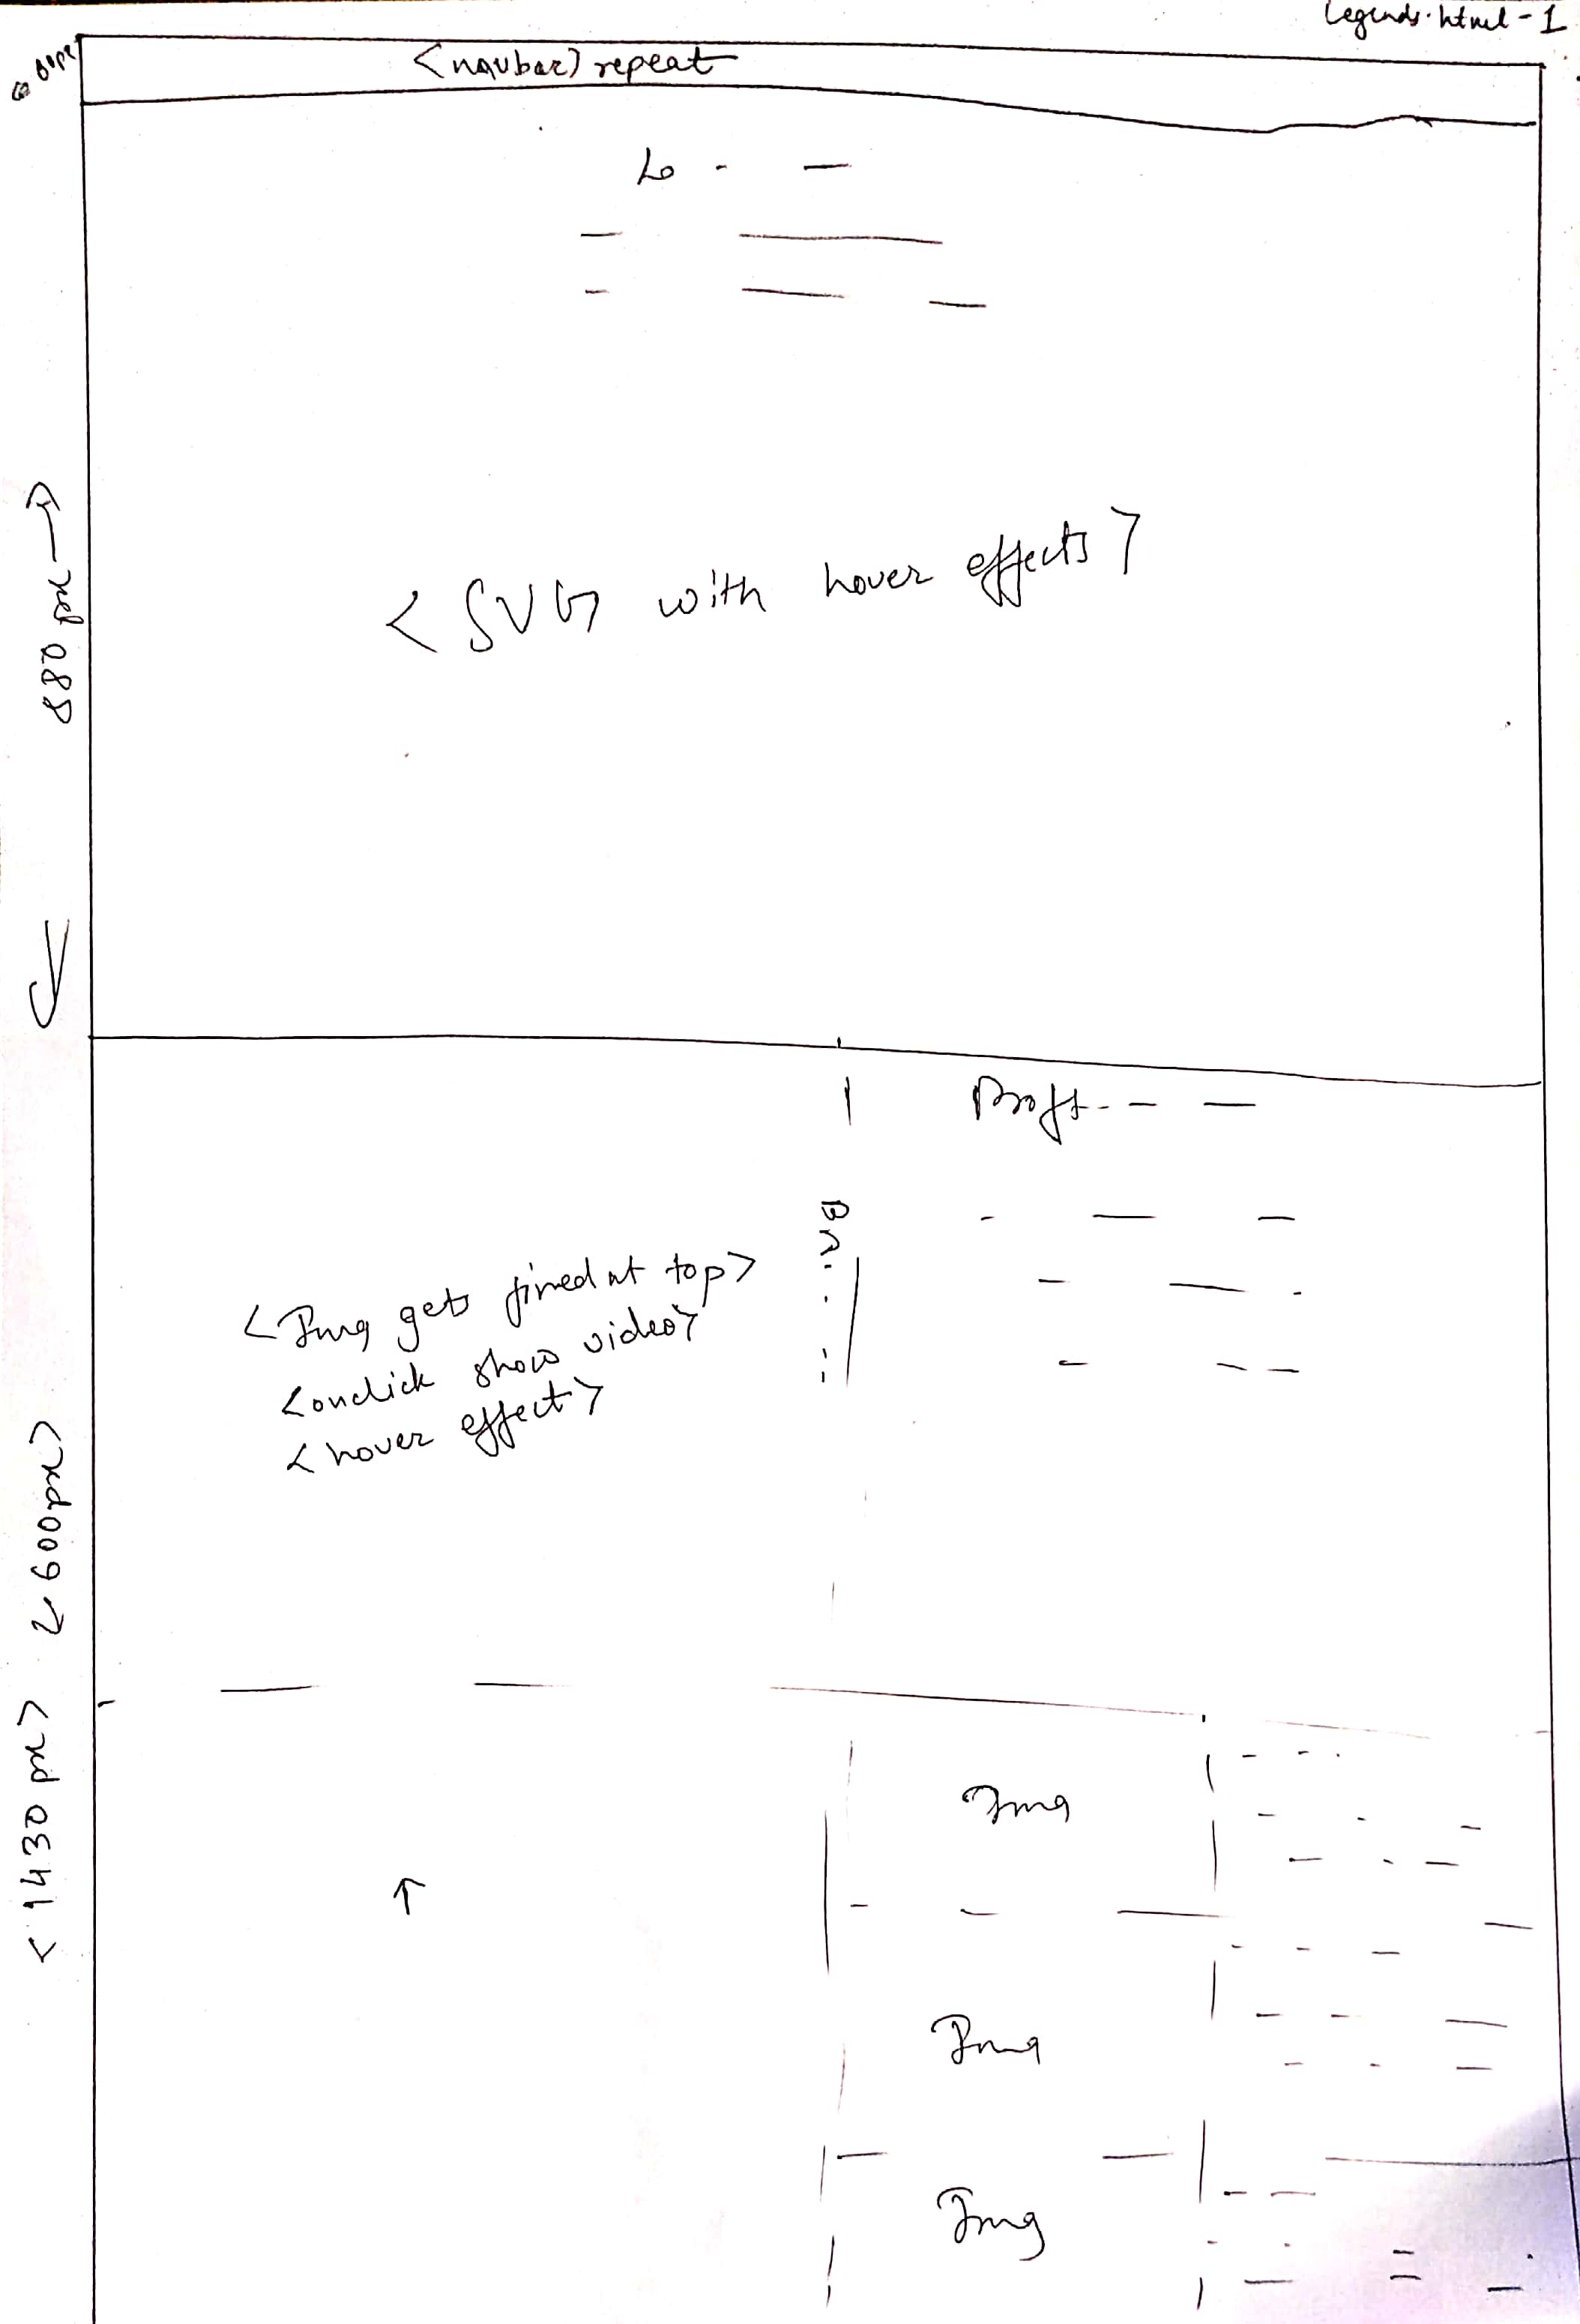 Legends.html-1
<navbar> repeat
Lo - —
880 px
<SVG with hover effects>
Proft - - —
<Img gets fixed at top>
<onclick show video>
<hover effect>
<600px>
<1430 px>
Img
↑
Img
Img